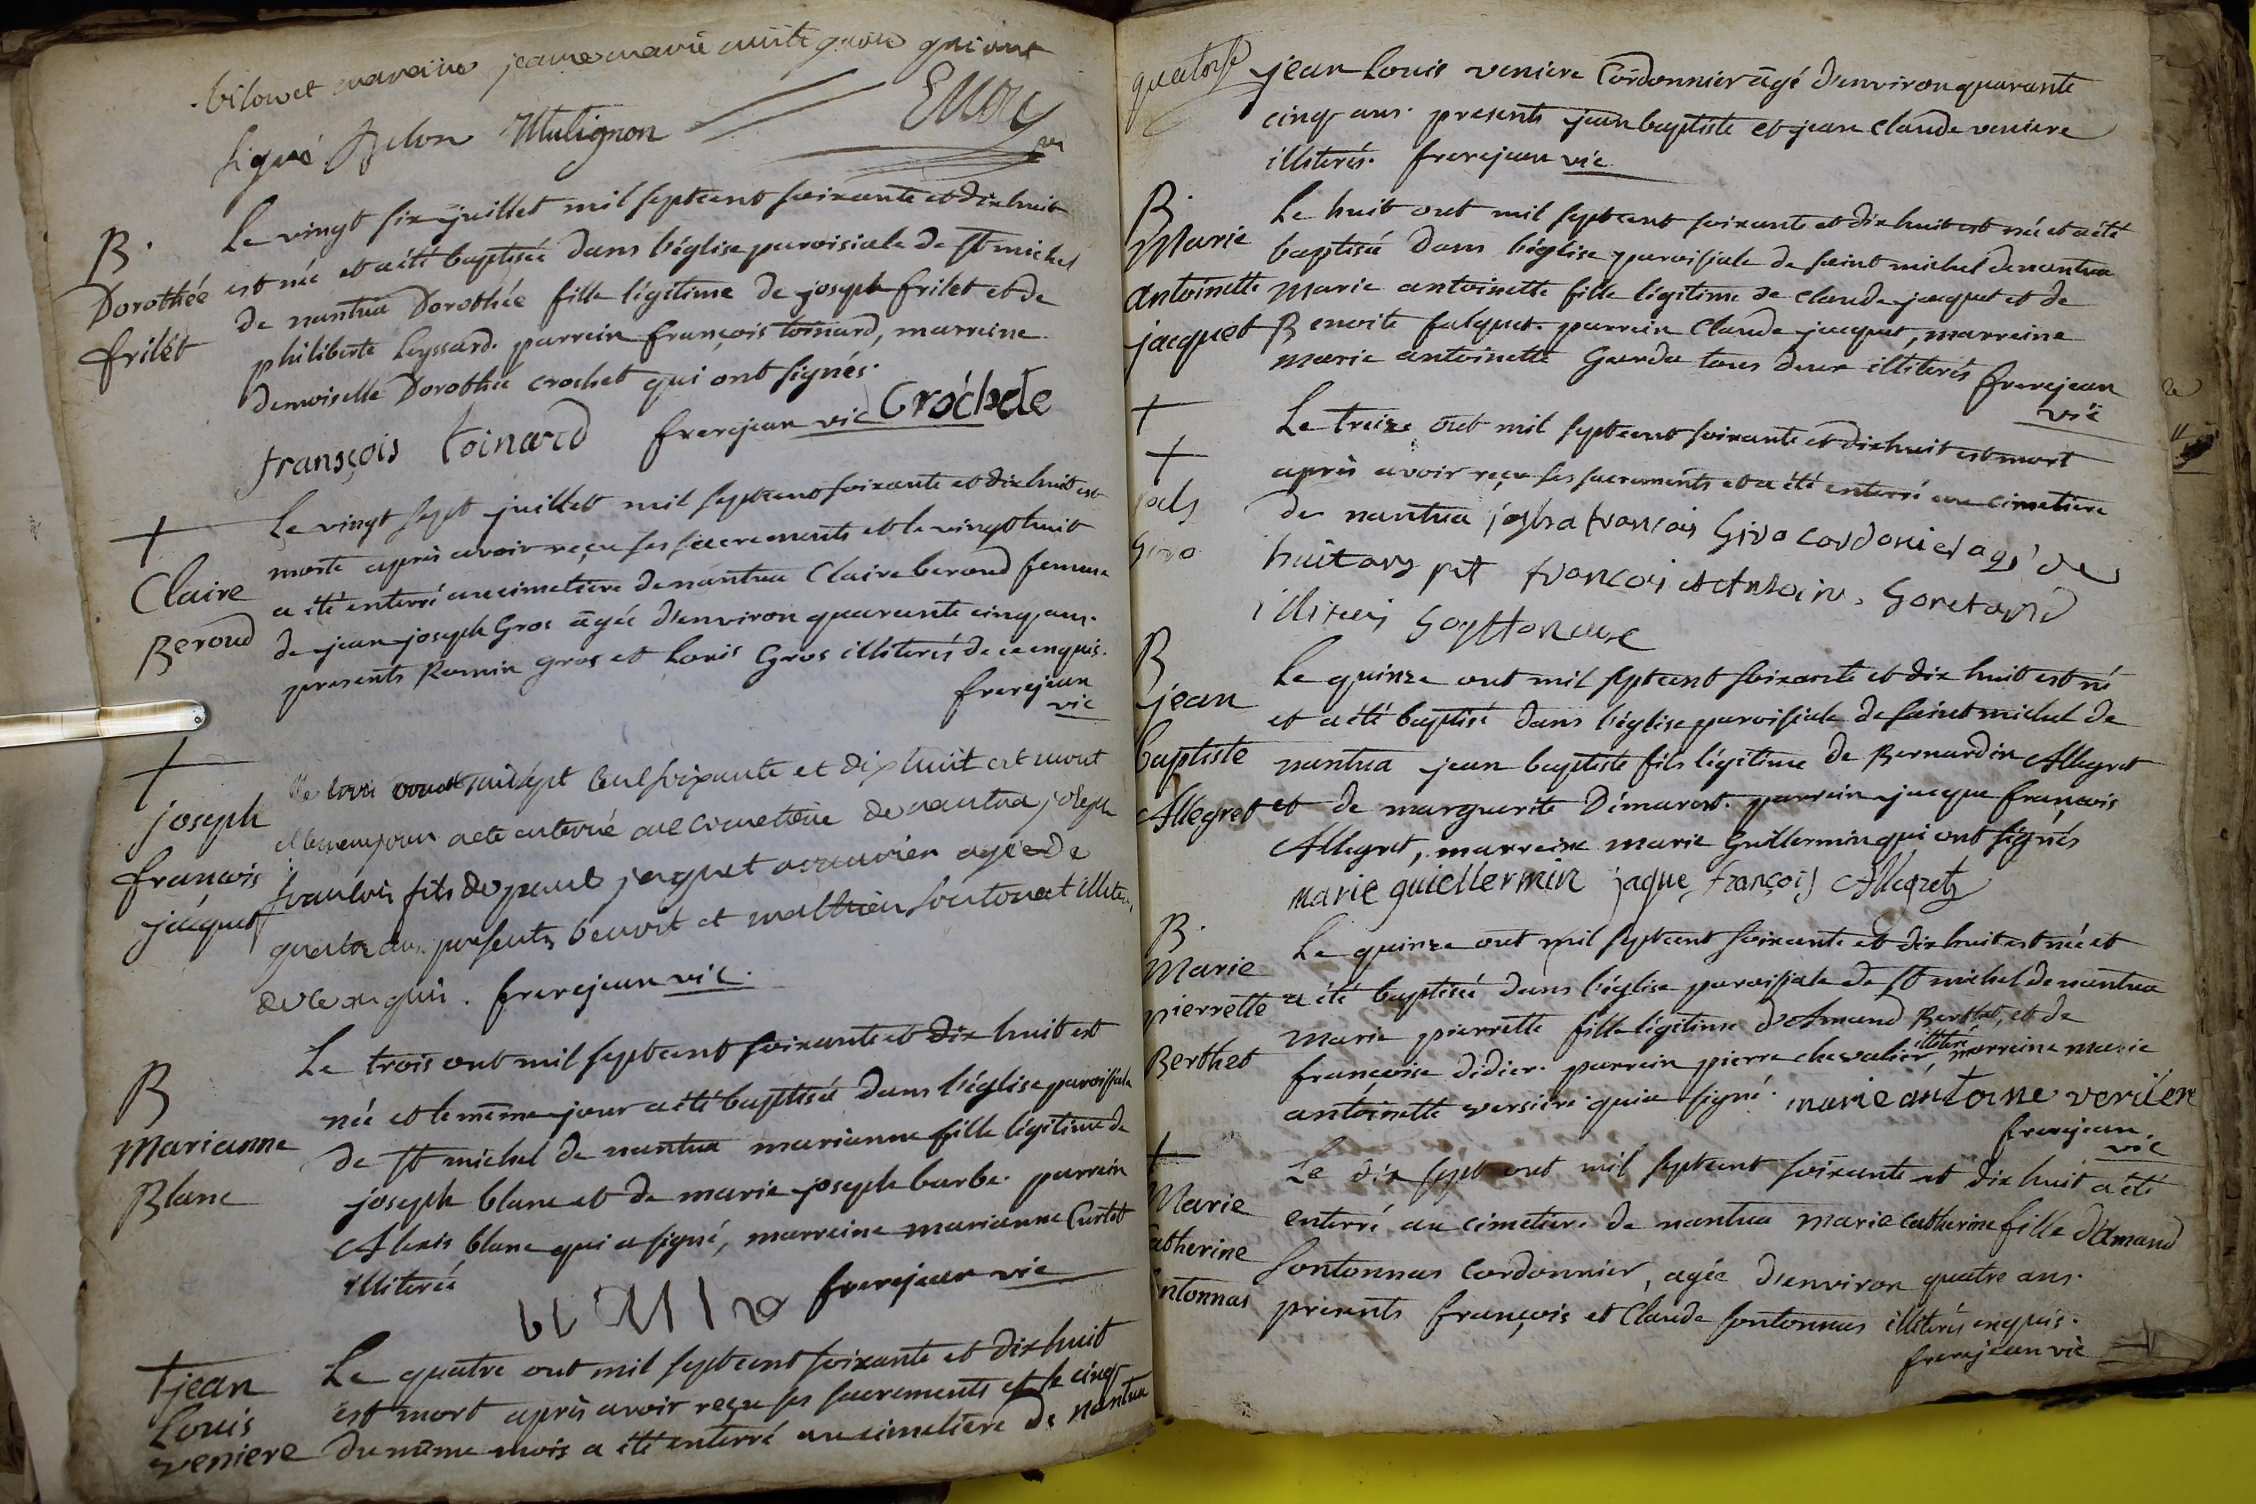 marreine jeanne marie qui ont
signé Mulignon
B. Le vingt six juillet mil septcent soixante et dix huit
Dorothée est née et a été baptisée dans l'église paroisiale de st michel
frilét de nantua Dorothée fille légitime de joseph frilet et de
philiberte Leyssard. parrein françois toinard, marreine
demoiselle Dorothée crochet qui ont signés.
françois toinard frerejean vic Crochete
Le vingt sept juillet mil septcent soixante et dix huit est
morte après avoir reçu ses sacrements et le vingt huit
Claire a été enterré au cimetiere de nantua Claire beroud femme
Beroud de jean joseph Gros agée d'environ quarante cinq ans.
presents Romin gros et Louis Gros illiterés de ce enquis.
frerejean
vic
mil sept cent soixante et dix huit est mort
joseph et le meme jour a eté enterré au cimetiere de nantua joseph
francois francois fils de paul jaquet agé de
jacquet quatre ans presents benoit et illiteres
de ce enquis. frerejean vic.
Le trois out mil septcent soixante et dix huit est
B née et le même jour a été baptisée dans l'église paroissiale
Marianne de st michel de nantua marianne fille légitime de
Blanc joseph blanc et de marie joseph barbe. parrein
Alexis blanc qui a signé, marreine marianne Curtet
illiterée
frerejean vic
jean Le quatre out mil septcent soixante et dix huit
Louis est mort après avoir reçu ses sacrements et le cinq
veniere du même mois a été enterré au cimetiere de nantua
quatorse jean Louis veniere Cordonnier âgé d'environ quarante
cinq ans. presents jean baptiste et jean claude veniere
illiterés. frerejean vic
B. Le huit out mil septcent soixante et dix huit est née et a été
Marie baptisée dans l'église paroissiale de saint michel de nantua
antoinette marie antoinette fille légitime de claude jacquet et de
jacquet Benoite falquet. parrein Claude jacquet, marreine
marie antoinette Garda tous deux illiterés frerejean
vic
Le treize out mil septcent soixante et dix huit est mort
après avoir reçu ses sacrements et a été enterré au cimetiere
de nantua francois Giro cordonier agé de
huit ans francois et
B Le quinze out mil septcent soixante et dix huit est né
jean et a été baptisé dans l'église paroissiale de saint michel de
baptiste nantua jean baptiste fils légitime de Bernardin Allegret
Allegret et de marguerite Dimarest. parrein jacque françois
Allegret, marreine marie Guillermin qui ont signés
marie guiellermin jaque françois Allegret
B. Le quinze out mil septcent soixante et dix huit est née et
Marie a été baptisée dans l'église paroissiale de st michel de nantua
pierrette marie pierrette fille légitime d'Amand Berthet, et de
Berthet francoise didier. parrein pierre chevalier illitéré, marreine marie
antoinette versiere qui a signé. marie antoine verilere
frerejean.
vic
Le dix sept out mil septcent soixante et dix huit a été
Marie enterré au cimetiere de nantua marie catherine fille d'Amand
catherine sontonnas Cordonnier, agée d'environ quatre ans.
sontonnas présents françois et Claude sontonnas illiterés enquis.
frerejean vic